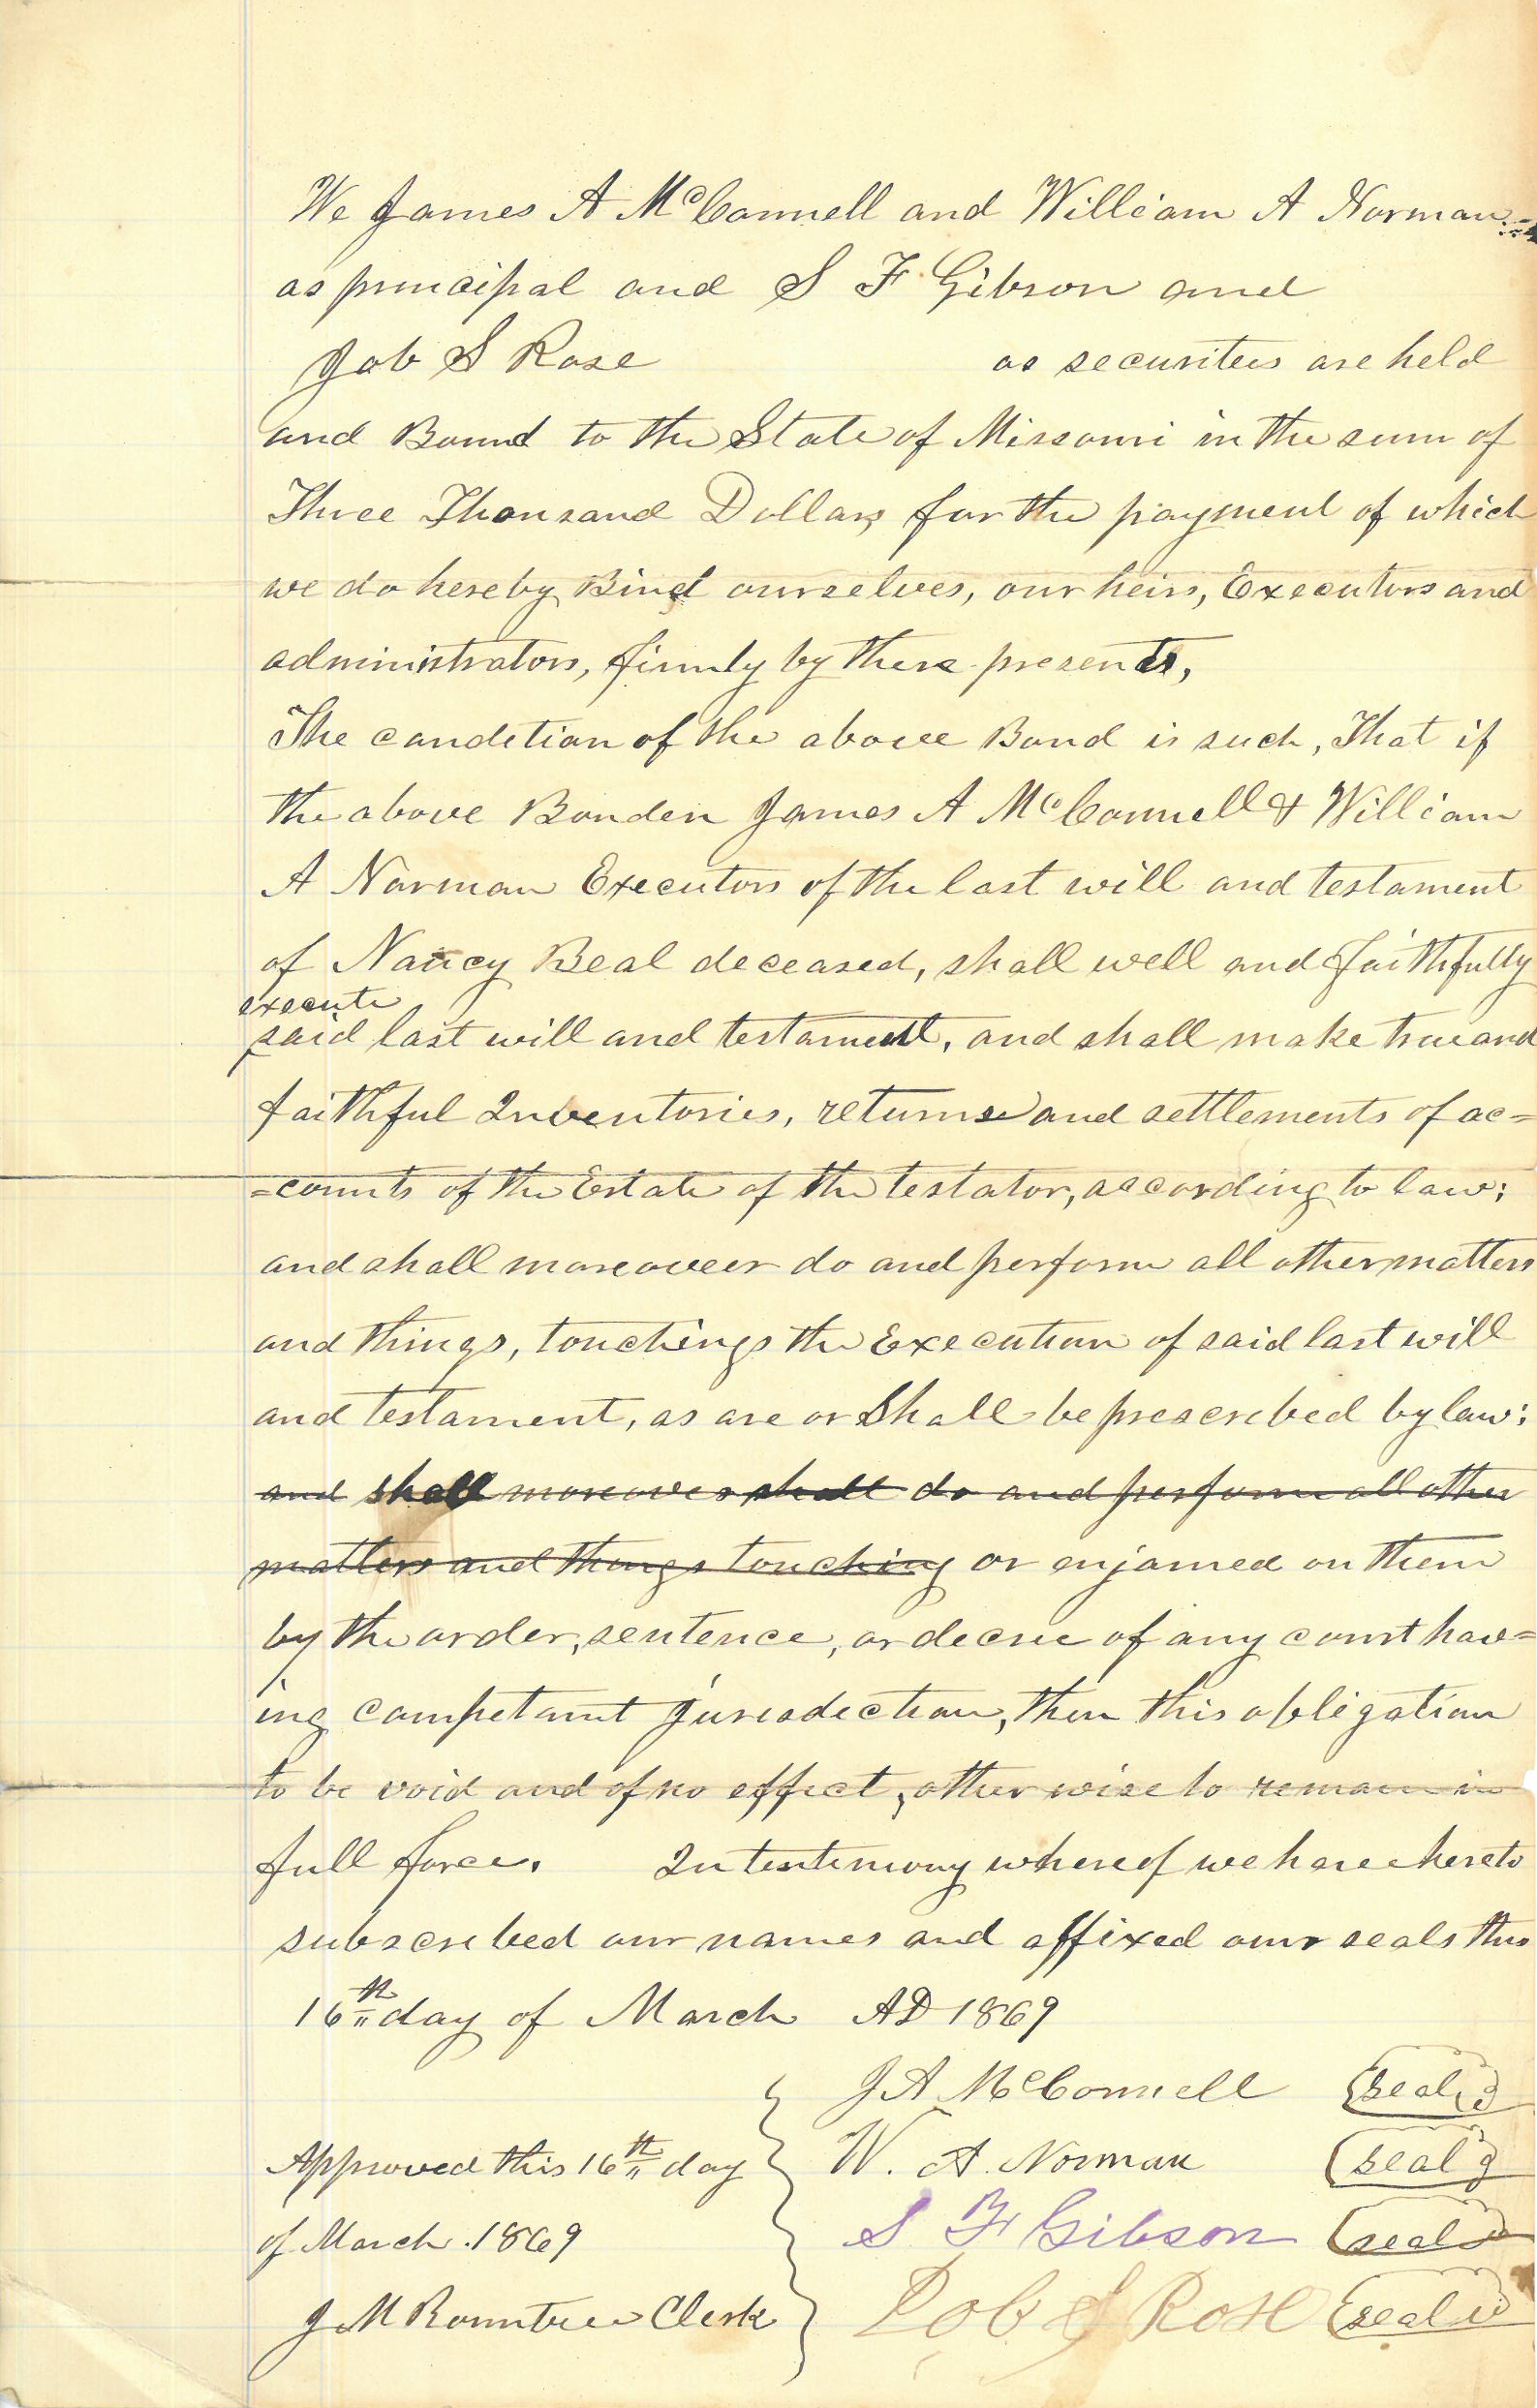 We James A McConnell and William A Norman
as principal and S F Gibson and
Job S Rose as securities are held
and Bound to the State of Missouri in the sum of
Three Thousand Dollars, for the payment of which
we do hereby Bind ourselves, our heirs, Executors and
administrators, firmly by these presents,
The condition of the above Bond is such, That if
the above Bonden James A McConnell & William
A Norman Executors of the last will and testament
of Nancy Beal deceased, shall well and faithfully
execute
said last will and testament, and shall make true and
faithful Inventories, returns and settlements of ac=
=counts of the Estate of the testator, according to law;
and shall moreover do and perform all other matters
and things, touching the Execution of said last will
and testament, as are or Shall be prescribed by law;
and shall moreover shall do and perform all other
matters and things touching or enjoined on them
by the order, sentence, or decree of any court hav=
ing competant jurisdiction, then this obligation
to be void and of no effect, otherwise to remain in
full force. In testimony whereof we have hereto
subscribed our names and affixed our seals this
16th day of March AD 1869
J A McConnell seal
Approved this 16th day W. A. Norman seal
of March . 1869 S F Gibson seal
J M Rountree Clerk Job S Rose seal